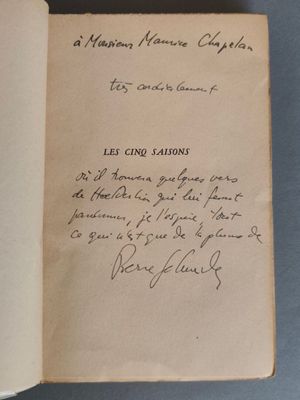 à Monsieur Maurice Chapelan
très cordialement
LES CINQ SAISONS
où il trouvera quelques vers
de Hoelderlin qui lui feront
pardonner, je l'espère, tout
ce qui n'est que de la plume de
Pierre